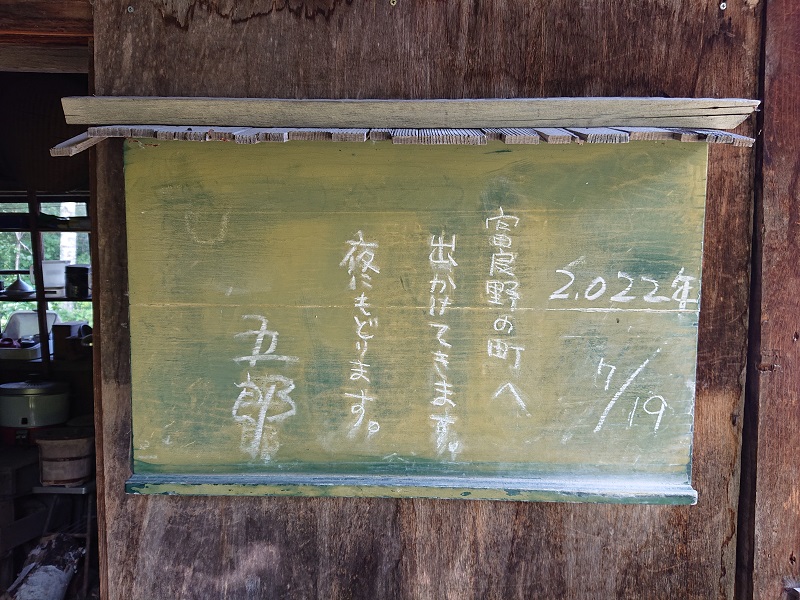 2.022年
7/19
富良野の町へ
出かけてきます。
夜にもどります。
五郎